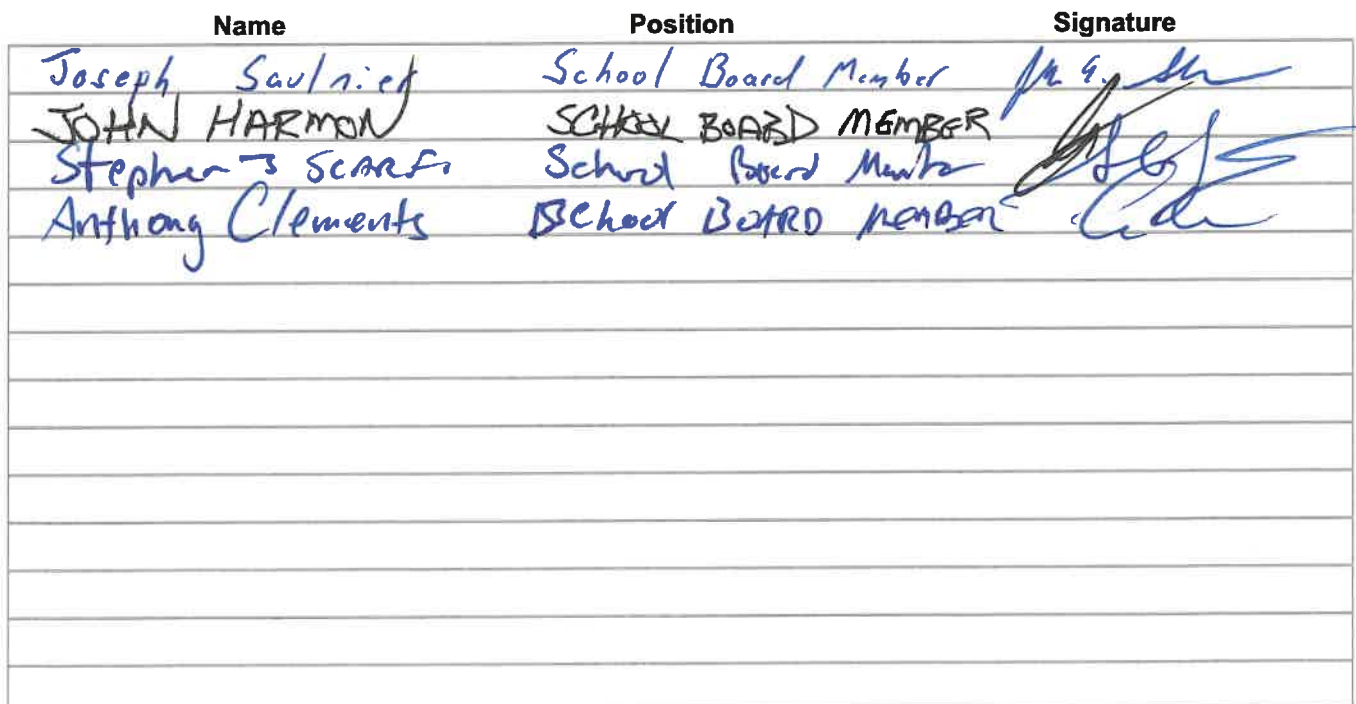 Name Position Signature
Joseph Saulnier School Board Member
JOHN HARMON SCHOOL BOARD MEMBER
Stephen J SCARFi School Board Member
Anthony Clements School BOARD MEMBER